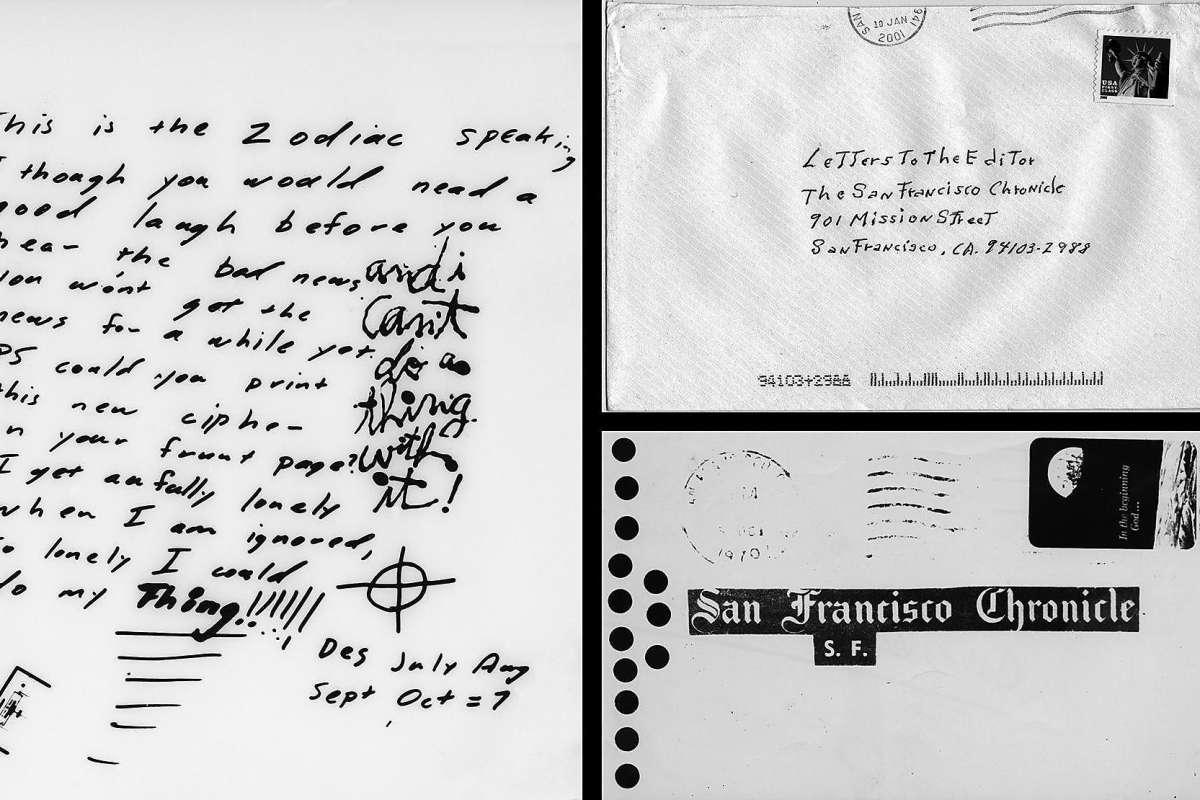 This is the Zodiac speaking
I though you would nead a
good laugh before you
hear the bad news
you won't get the
news for a while yet.
PS could you print
this new cipher
on your frunt page?
I get awfully lonely
when I am ignored,
So lonely I could
do my Thing!!!!!!!
and i
can't
do a
thing
with
it!
Des July Aug
Sept Oct = 7
SAN 941
10 JAN
2001
USA
FIRST
CLASS
LeTTers To The EdiTor
The San Francisco Chronicle
901 Mission StreeT
San Francisco, CA. 94103-2988
94103+2988
1970
In the beginning
God...
San Francisco Chronicle
S. F.